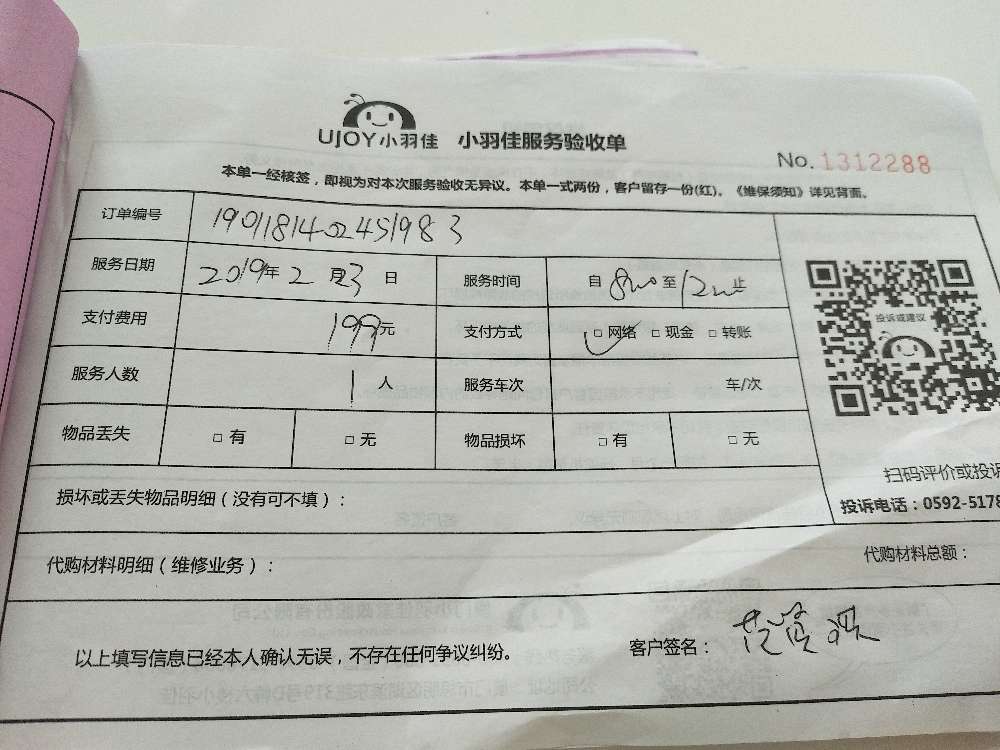 UJOY小羽佳 小羽佳服务验收单
No. 1312288
本单一经核签，即视为对本次服务验收无异议。本单一式两份，客户留存一份(红)。《维保须知》详见背面。
订单编号 1901181402451983
服务日期 2019年2月3日 服务时间 自8:00至12:00止
投诉或建议
支付费用 199元 支付方式 □网络 □现金 □转账
服务人数 1人 服务车次 车/次
物品丢失 □有 □无 物品损坏 □有 □无
扫码评价或投诉
损坏或丢失物品明细（没有可不填）：
投诉电话：0592-5178
代购材料明细（维修业务）： 代购材料总额：
以上填写信息已经本人确认无误，不存在任何争议纠纷。 客户签名：